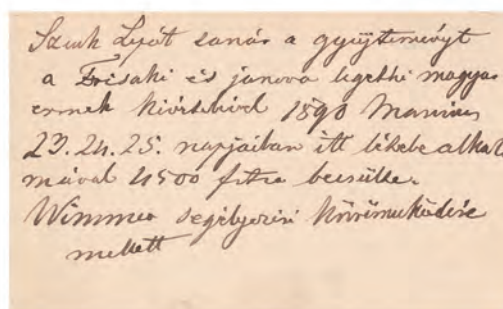 Szenk Lipót tanár a gyüjteményt
a és janova legethi magyar
érmek kivételével 1890 Marcius
23. 24. 25. napjaiban itt létele alkal
mával 4500 frtra becsülte.
Wimmer segélyezési közremüködése
mellett